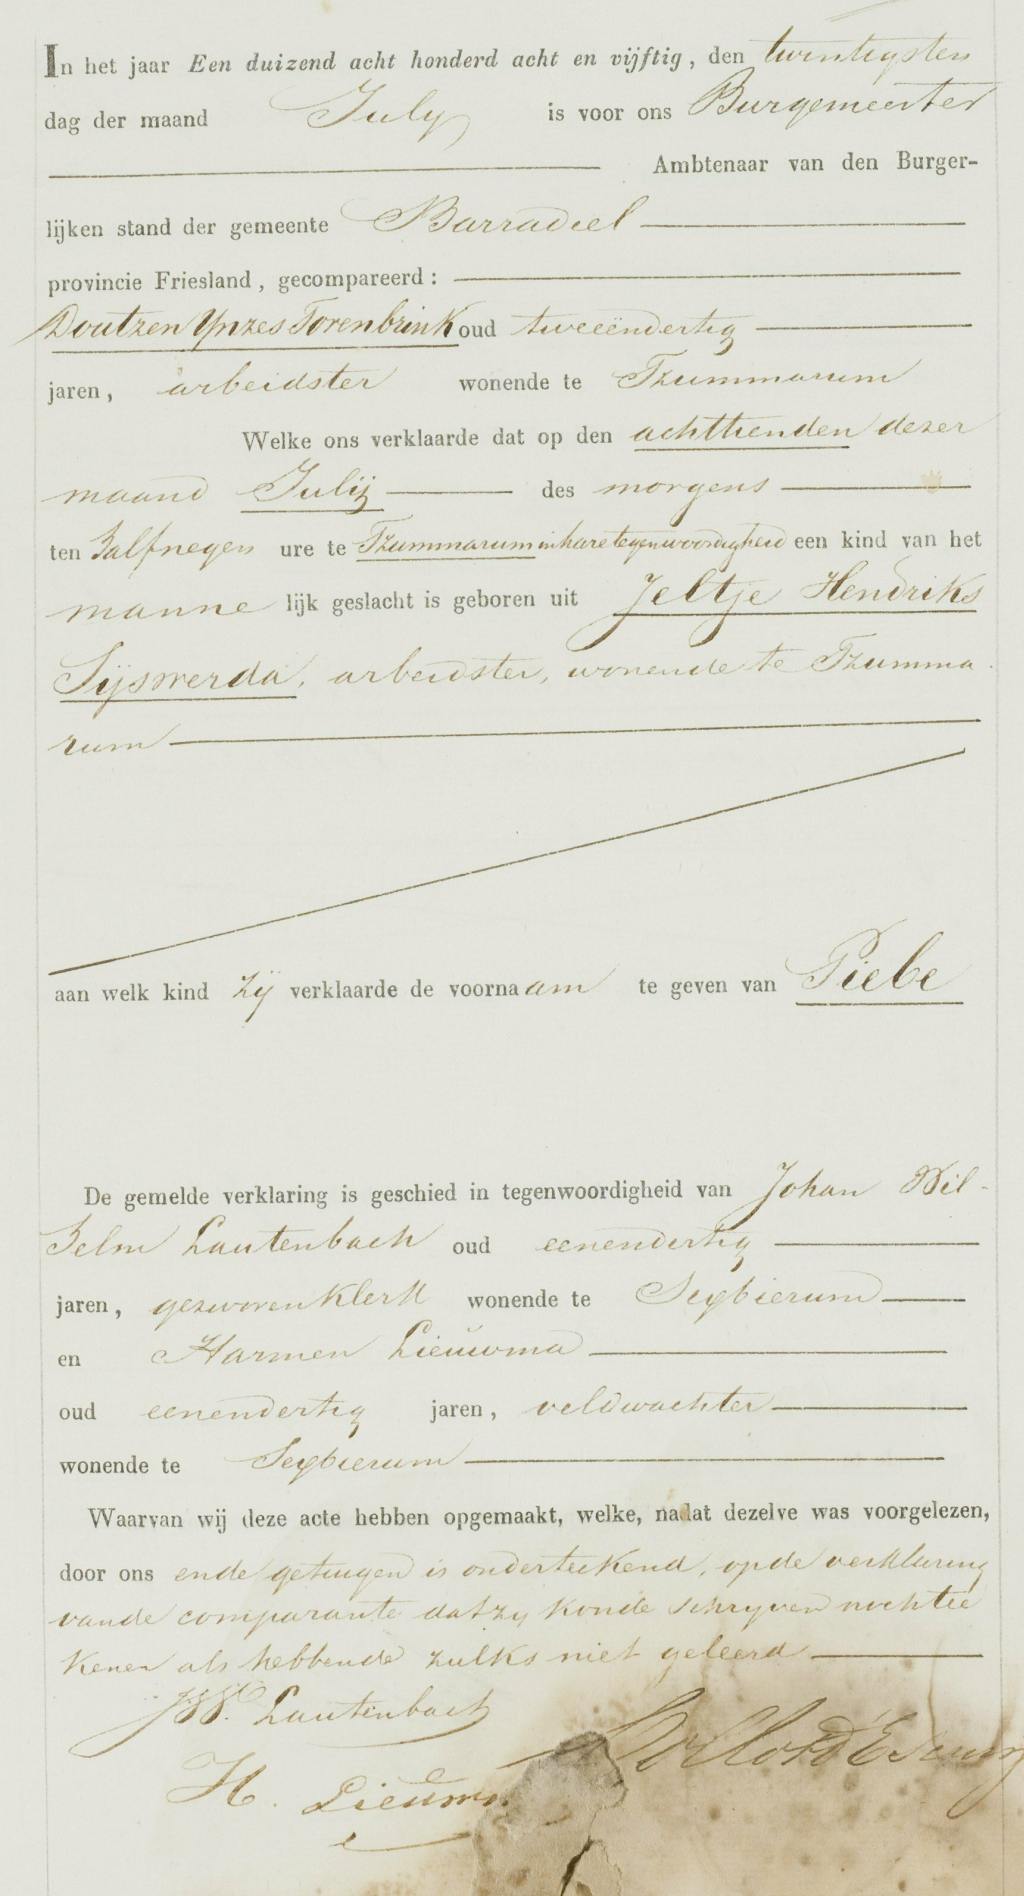 In het jaar Een duizend acht honderd acht en vijftig, den twintigsten
dag der maand July is voor ons Burgemeester
Ambtenaar van den Burger-
lijken stand der gemeente Barradeel
provincie Friesland, gecompareerd:
Doutzen Ynzes Torenbrink oud tweeëndertig
jaren, arbeidster wonende te Tzummarum
Welke ons verklaarde dat op den achttienden dezer
maand Julij des morgens
ten half negen ure te Tzummarum in hare tegenwoordigheid een kind van het
manne lijk geslacht is geboren uit Jeltje Hendriks
Sijswerda, arbeidster, wonende te Tzumma
rum
aan welk kind zij verklaarde de voornaam te geven van Piebe
De gemelde verklaring is geschied in tegenwoordigheid van Johan Wil-
helm Lautenbach oud eenendertig
jaren, gezworen klerk wonende te Sexbierum
en Harmen Lieuwma
oud eenendertig jaren, veldwachter
wonende te Sexbierum
Waarvan wij deze acte hebben opgemaakt, welke, nadat dezelve was voorgelezen,
door ons en de getuigen is onderteekend, op de verklaring
van de comparante dat zy konde schryven noch tee
kenen als hebbende zulks niet geleerd
J.W. Lautenbach
H. Lieuwma